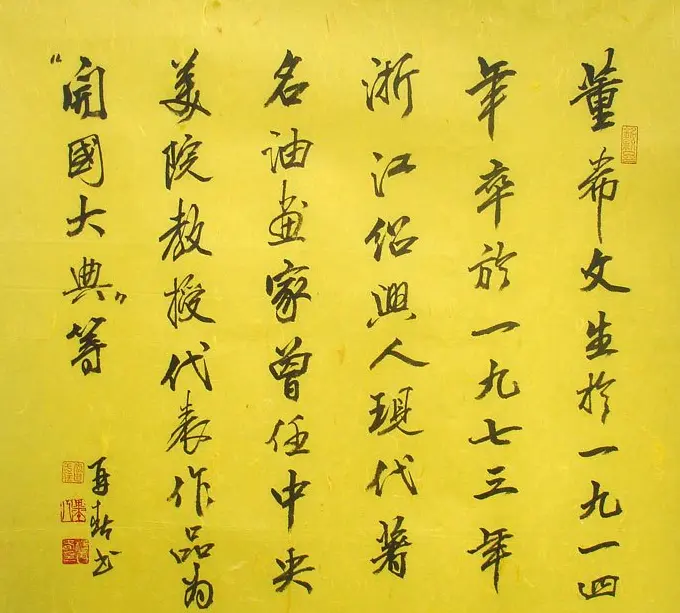 董希文生於一九一四
年卒於一九七三年
浙江绍興人現代著
名油畫家曾任中央
美院教授代表作品为
"開國大典"等
再春书